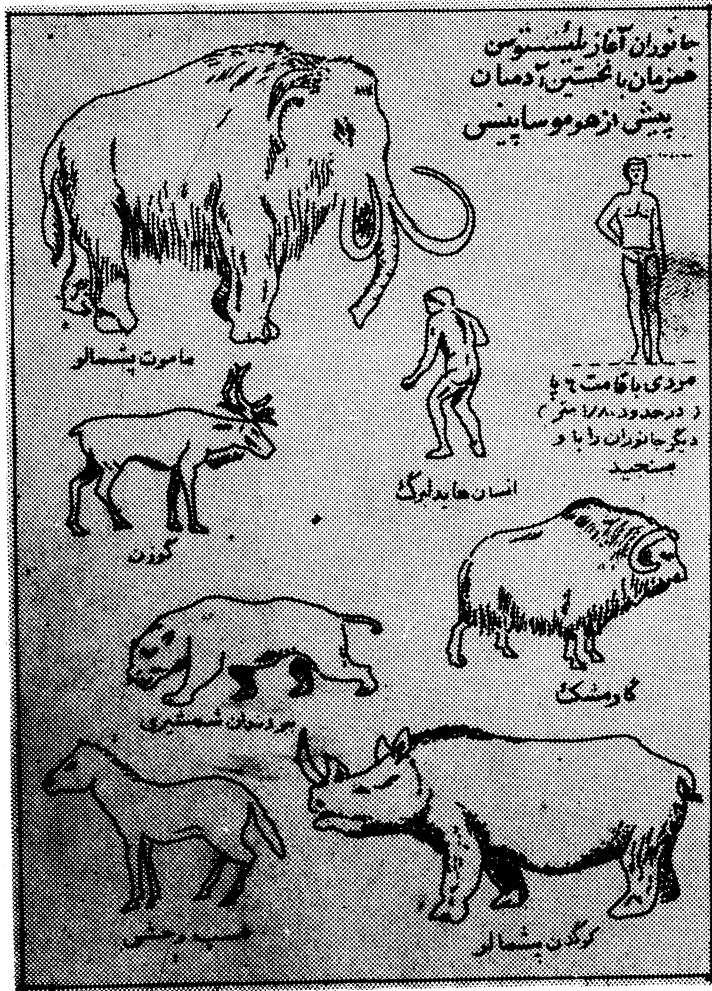 جانوران آغاز پلیستوسن
همزمان با نخستین آدمیان
پیش از هوموساپینس
ماموت پشمالو
مردی باقامت ۶ پا
( درحدود ۱/۸۰ متر )
دیگر جانوران را با و
بسنجید
انسان هایدلبرگ
گوزن
گاومشک
شمشیری
اسب وحشی
کرگدن پشمالو